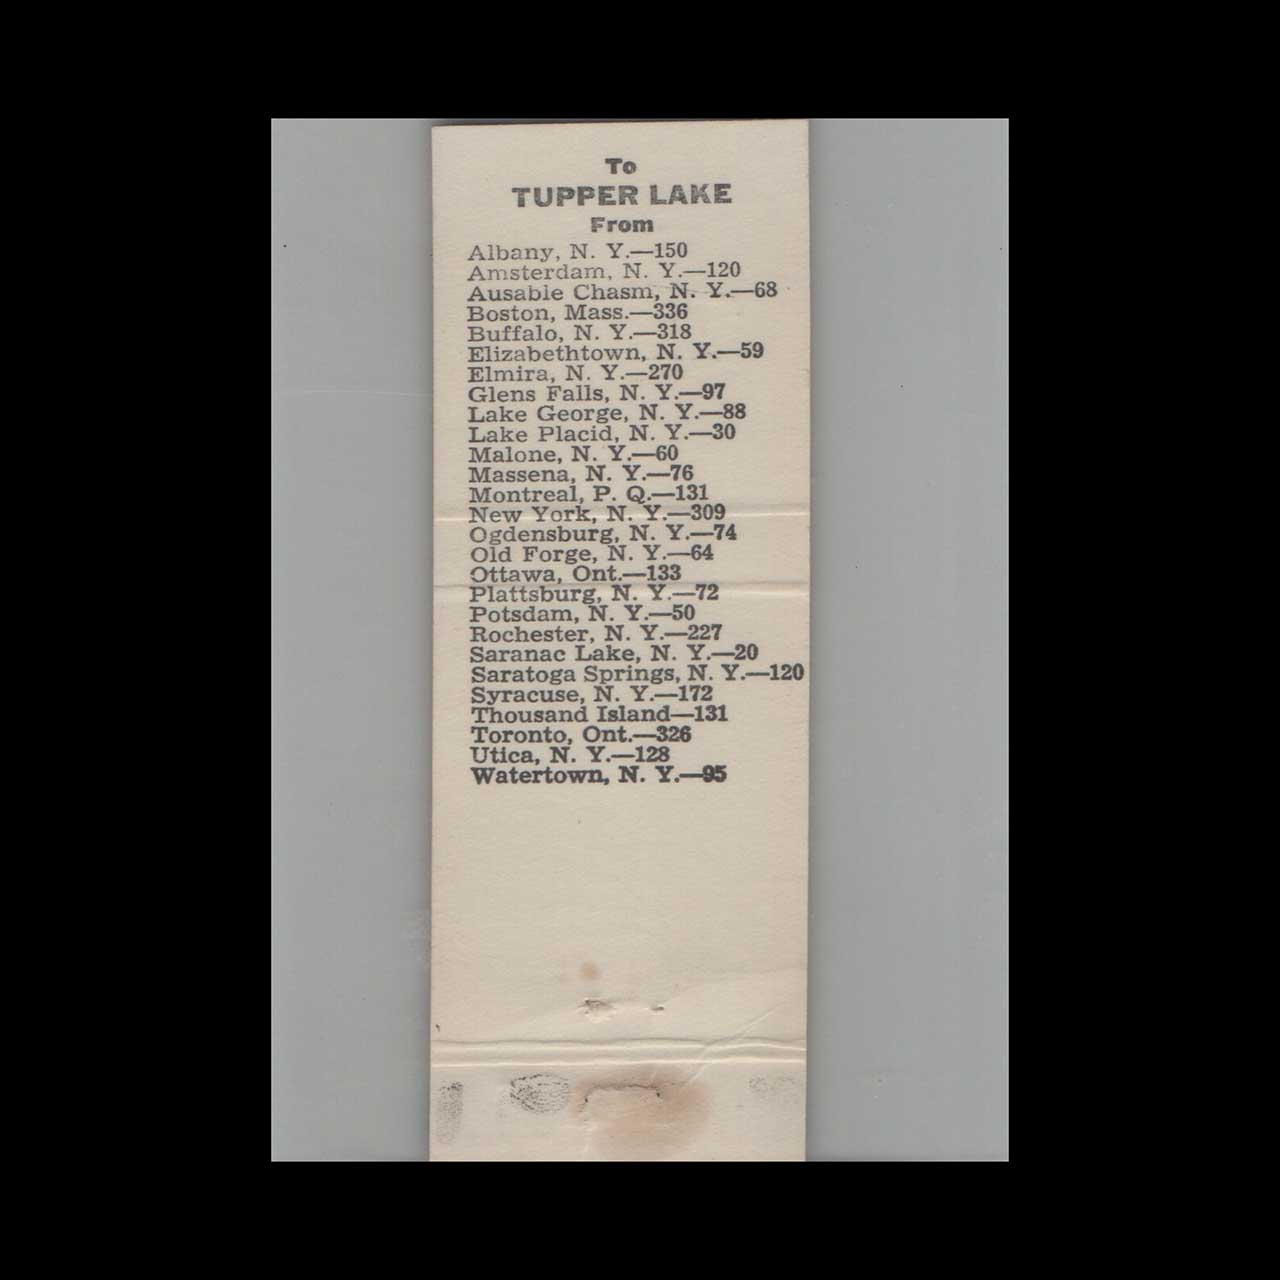 To
TUPPER LAKE
From
Albany, N. Y.—150
Amsterdam, N. Y.—120
Ausable Chasm, N. Y.—68
Boston, Mass.—336
Buffalo, N. Y.—318
Elizabethtown, N. Y.—59
Elmira, N. Y.—270
Glens Falls, N. Y.—97
Lake George, N. Y.—88
Lake Placid, N. Y.—30
Malone, N. Y.—60
Massena, N. Y.—76
Montreal, P. Q.—131
New York, N. Y.—309
Ogdensburg, N. Y.—74
Old Forge, N. Y.—64
Ottawa, Ont.—133
Plattsburg, N. Y.—72
Potsdam, N. Y.—50
Rochester, N. Y.—227
Saranac Lake, N. Y.—20
Saratoga Springs, N. Y.—120
Syracuse, N. Y.—172
Thousand Island—131
Toronto, Ont.—326
Utica, N. Y.—128
Watertown, N. Y.—95